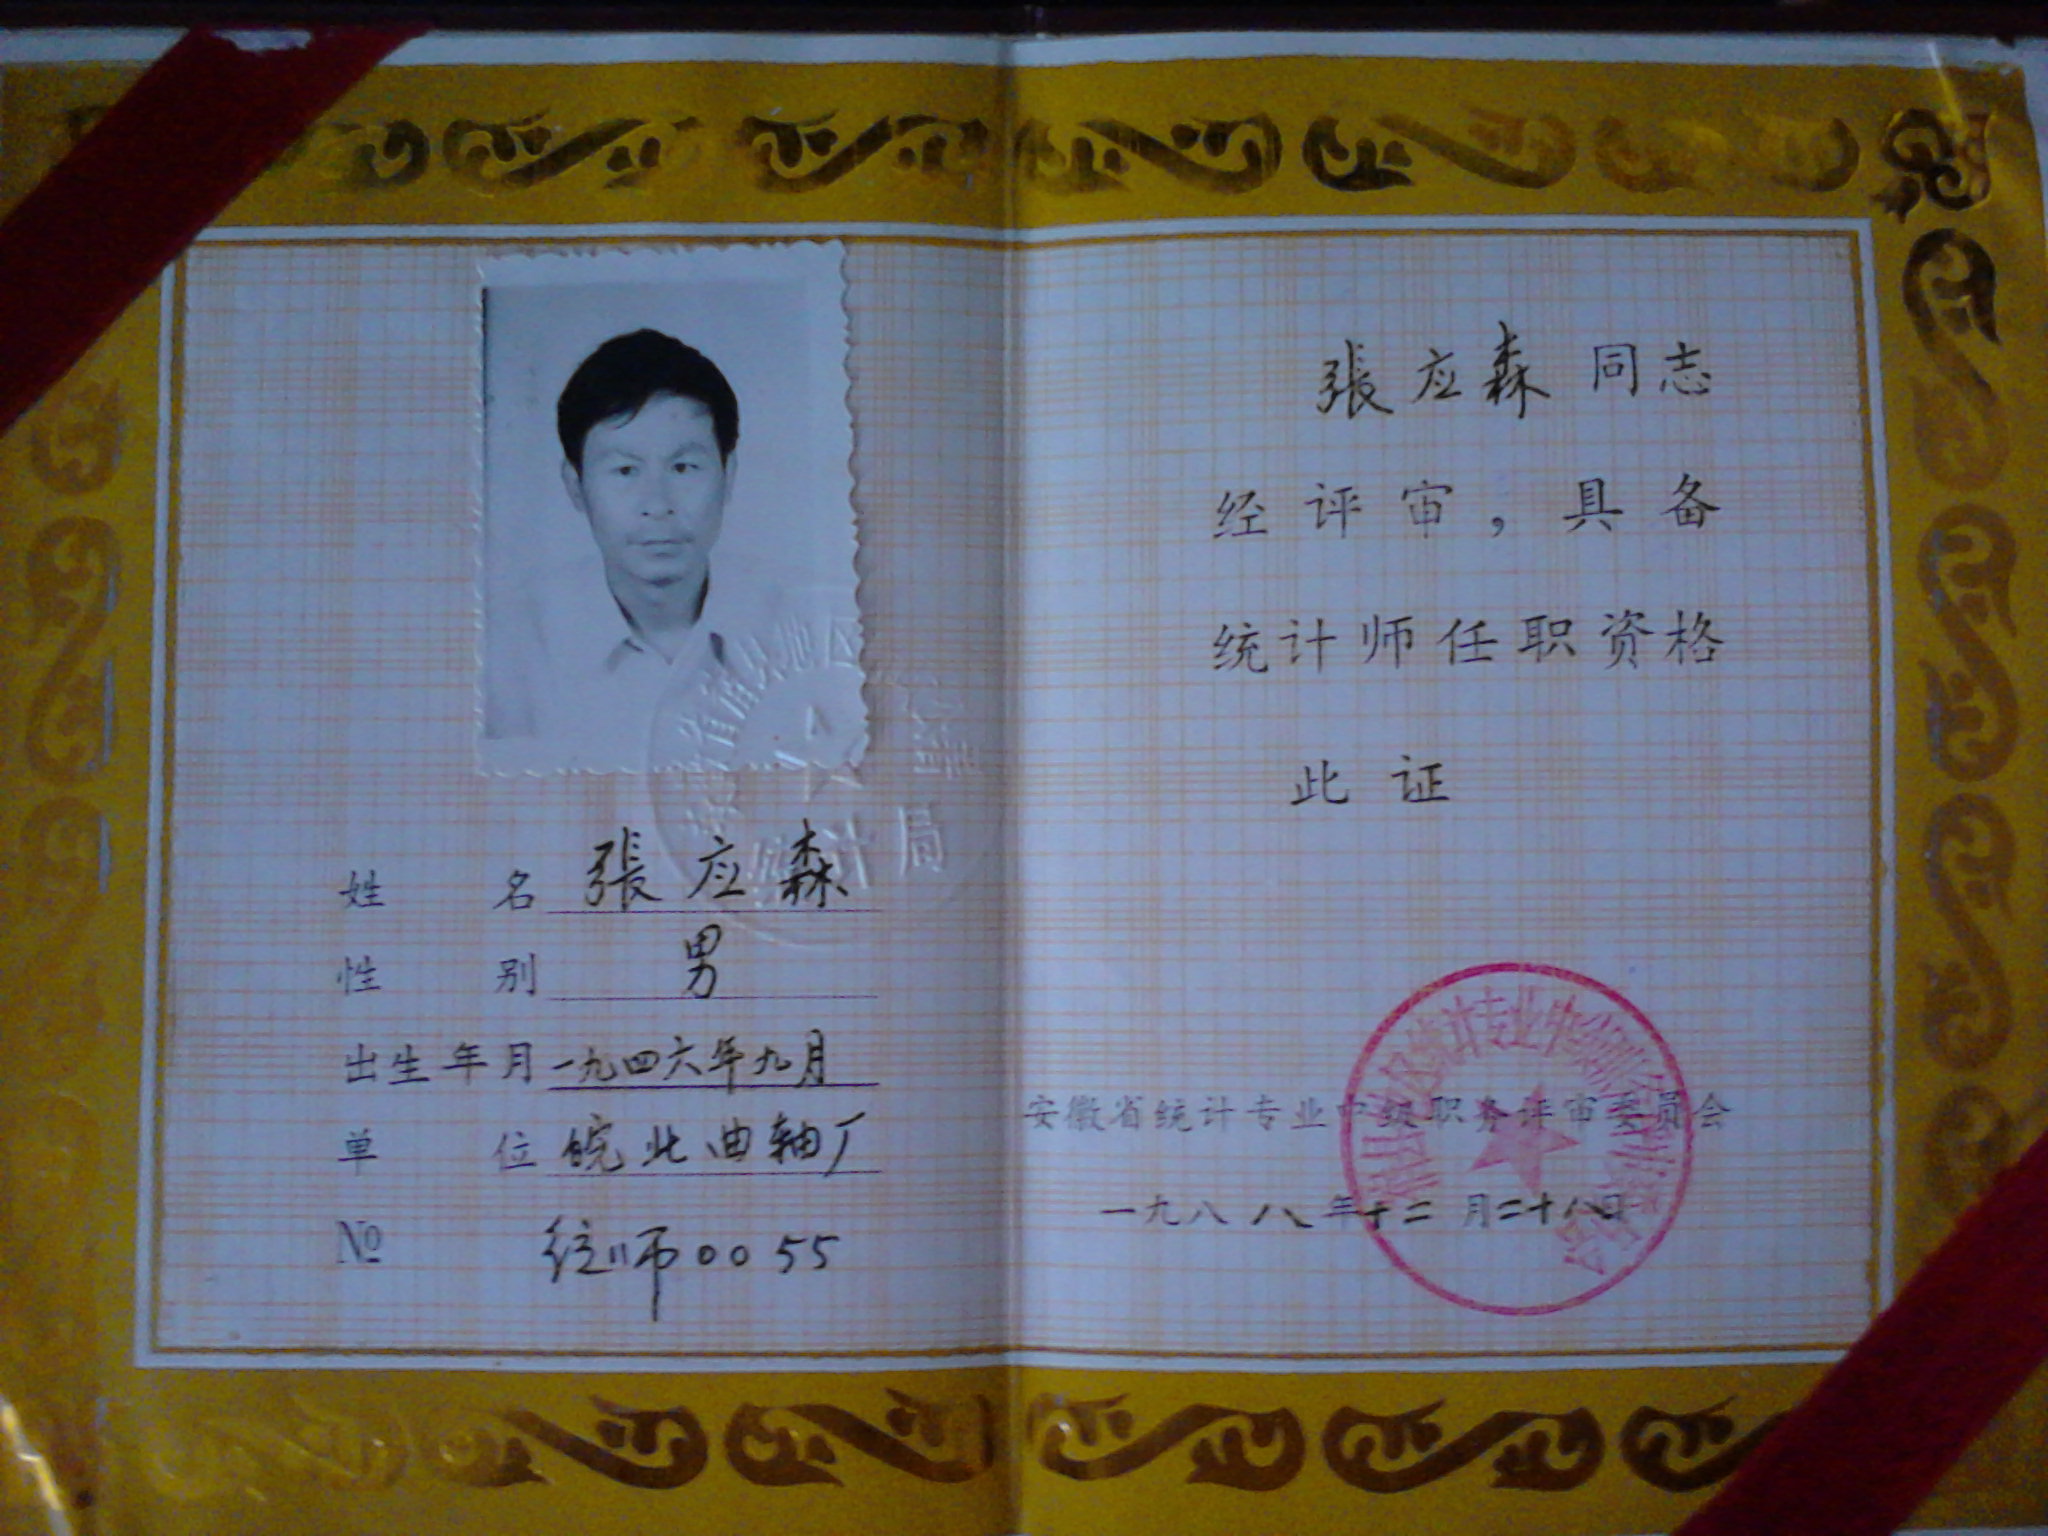 姓名 張应森
性别 男
出生年月 一九四六年九月
单位 皖北曲轴厂
№ 统师0055
統计局
張应森同志
经评审，具备
统计师任职资格
此证
安徽省统计专业中级职务评审委员会
一九八八年十二月二十八日